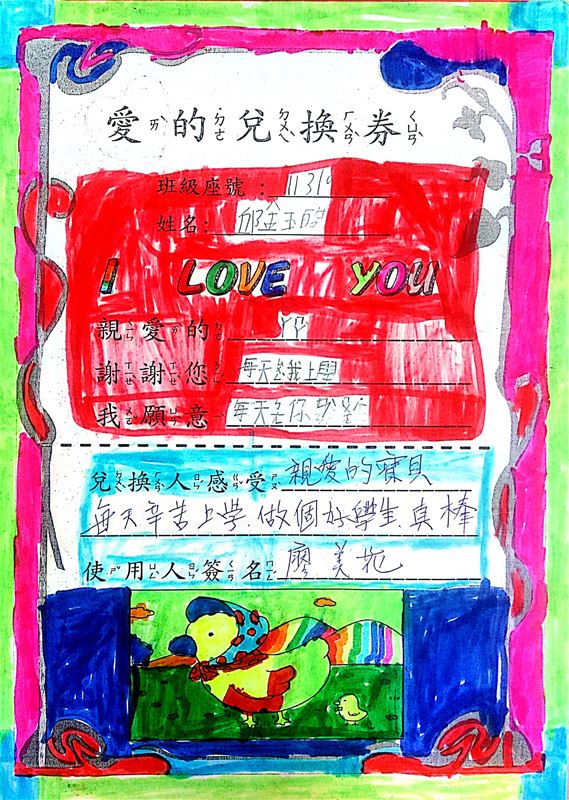 愛ㄞˋ的˙ㄉㄜ兌ㄉㄨㄟˋ換ㄏㄨㄢˋ券ㄑㄩㄢˋ
班級座號：1131
姓名：
I LOVE YOU
親ㄑㄧㄣ愛ㄞˋ的˙ㄉㄜ
謝ㄒㄧㄝˋ謝ㄒㄧㄝˋ您ㄋㄧㄣˊ 每天ㄗㄞˋ我上學
我ㄨㄛˇ願ㄩㄢˋ意ㄧˋ 每天
兌ㄉㄨㄟˋ換ㄏㄨㄢˋ人ㄖㄣˊ感ㄍㄢˇ受ㄕㄡˋ 親愛的寶貝
每天辛苦上學.做個好學生.真棒
使ㄕˇ用ㄩㄥˋ人ㄖㄣˊ簽ㄑㄧㄢ名ㄇㄧㄥˊ 廖美